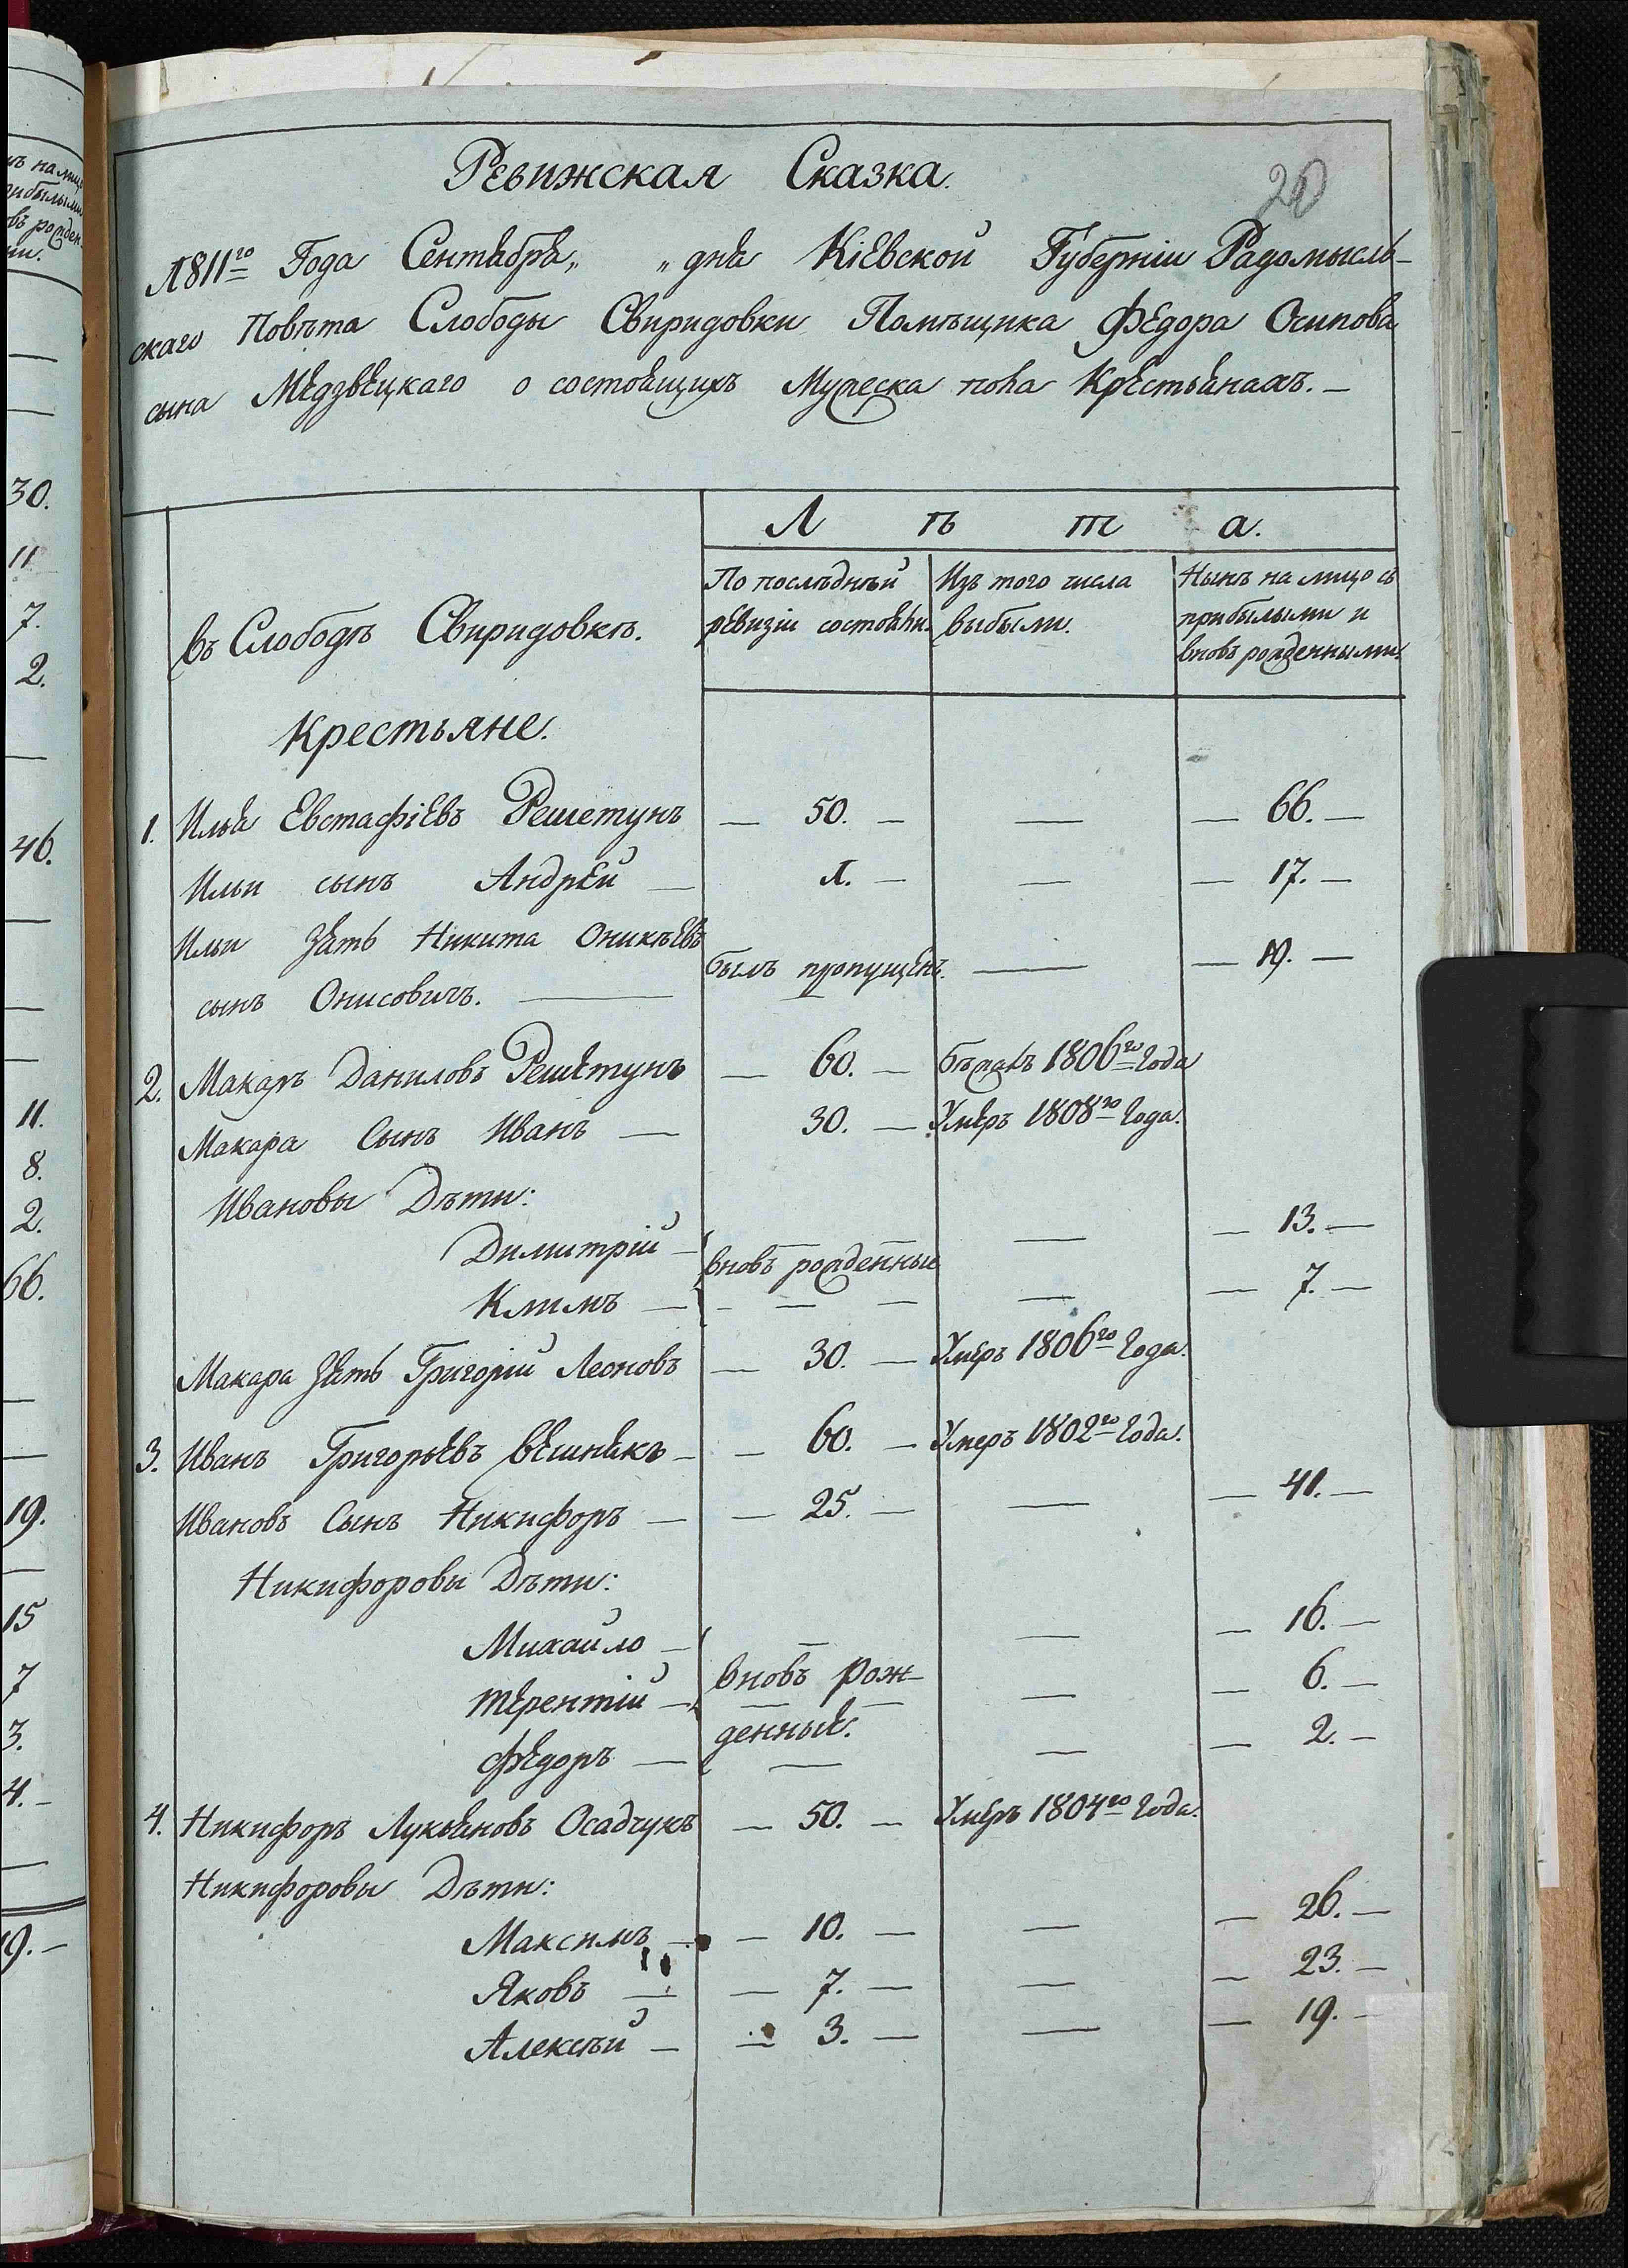 20
Ревижская Сказка.
1811го Года Сентября „ „ дня Кіевской Губерніи Радомысль-
скаго Повѣта Слободы Свиридовки Помѣщика Федора Осипова
сына Медзвецкаго о состоящихъ Мужеска пола Крестьянахъ. —
Л ѣ т а.
въ Слободѣ Свиридовкѣ.
По послѣднѣй ревизіи состояли.
Изъ того числа выбыли.
Нынѣ на лицо съ прибылыми и вновь рожденными.
Крестьяне.
1. Илья Евстафіевъ Решетунъ — 50. — — — 66. —
Ильи сынъ Андрей — 1. — — — 17. —
Ильи Зять Никита Оникѣевъ
сынъ Онисовичъ. — былъ пропущенъ. — — 19. —
2. Макаръ Даниловъ Решетунъ — 60. — Бѣжалъ 1806го Года
Макара Сынъ Иванъ — 30. — Умеръ 1808го Года.
Ивановы Дѣти:
Димитрій — вновь рожденные — — 13. —
Климъ — — — 7. —
Макара Зять Григорій Леоновъ — 30. — Умеръ 1806го Года.
3. Иванъ Григорьевъ Вешнякъ — — 60. — Умеръ 1802го Года.
Ивановъ Сынъ Никифоръ — — 25. — — — 41. —
Никифоровы Дѣти:
Михайло — — — 16. —
Терентій — вновь рож- — — 6. —
Федоръ — денные. — — 2. —
4. Никифоръ Лукьяновъ Осадчукъ — 50. — Умеръ 1804го Года.
Никифоровы Дѣти:
Максимъ — — 10. — — — 26. —
Яковъ — — 7. — — — 23. —
Алексѣй — — 3. — — — 19. —
30.
11
7.
2.
46.
11.
8.
2.
66.
19.
15
7
3.
4. —